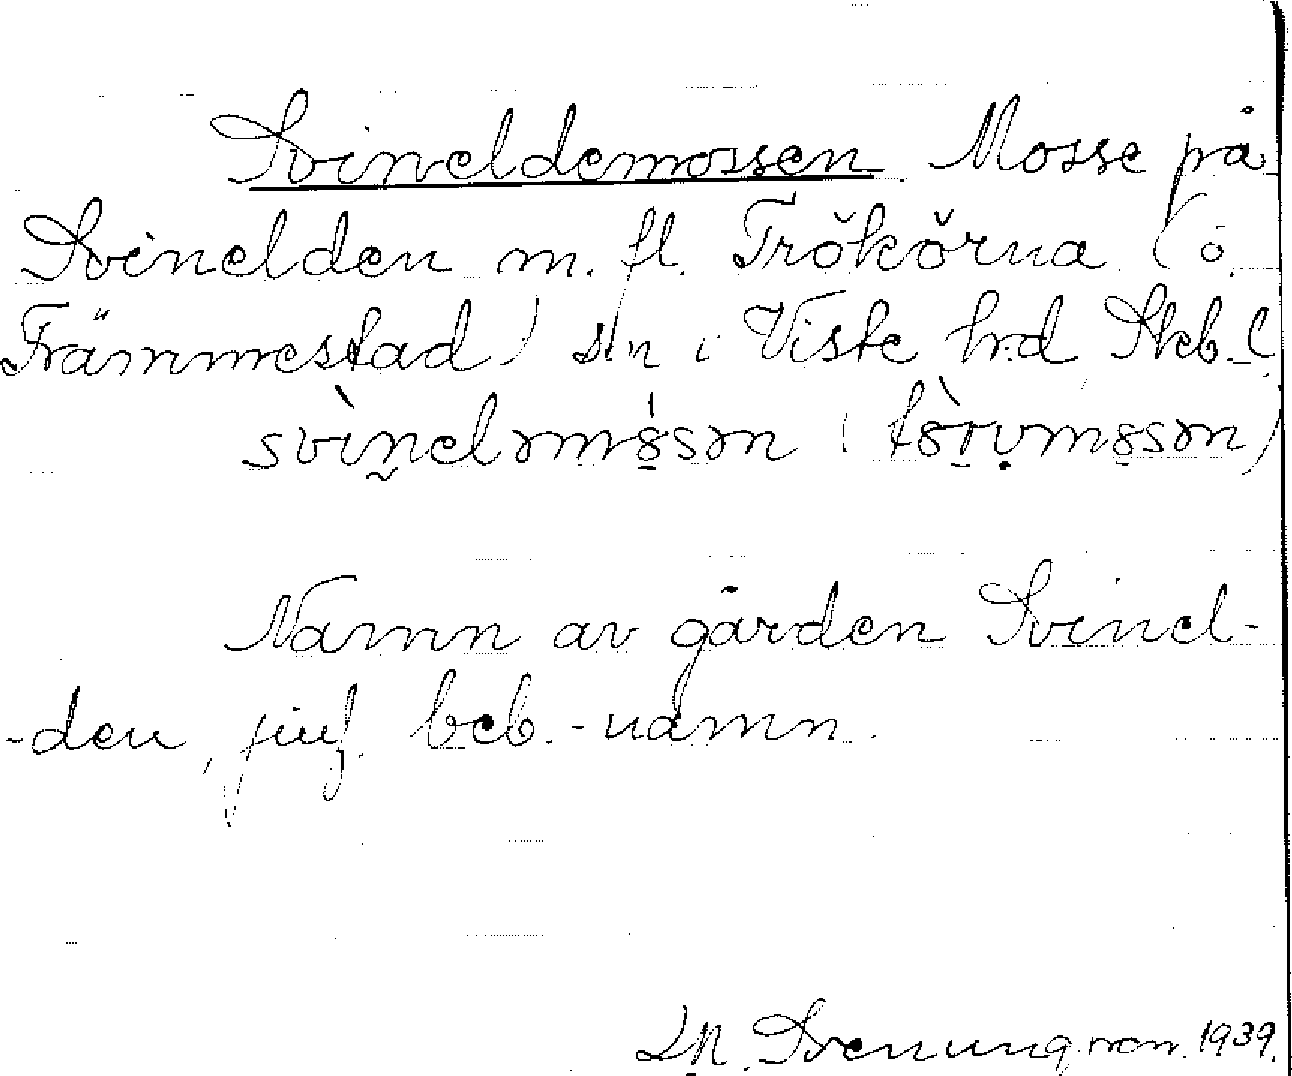 Svineldemossen. Mosse på
Svinelden m. fl. Trökörna (o.
Främmestad) sn i Viste hrd Skb. l.
svinelǝmȯsǝn
Namn av gården Svinel-
-den, jmf. beb.-namn.
Svenung nov. 1939.